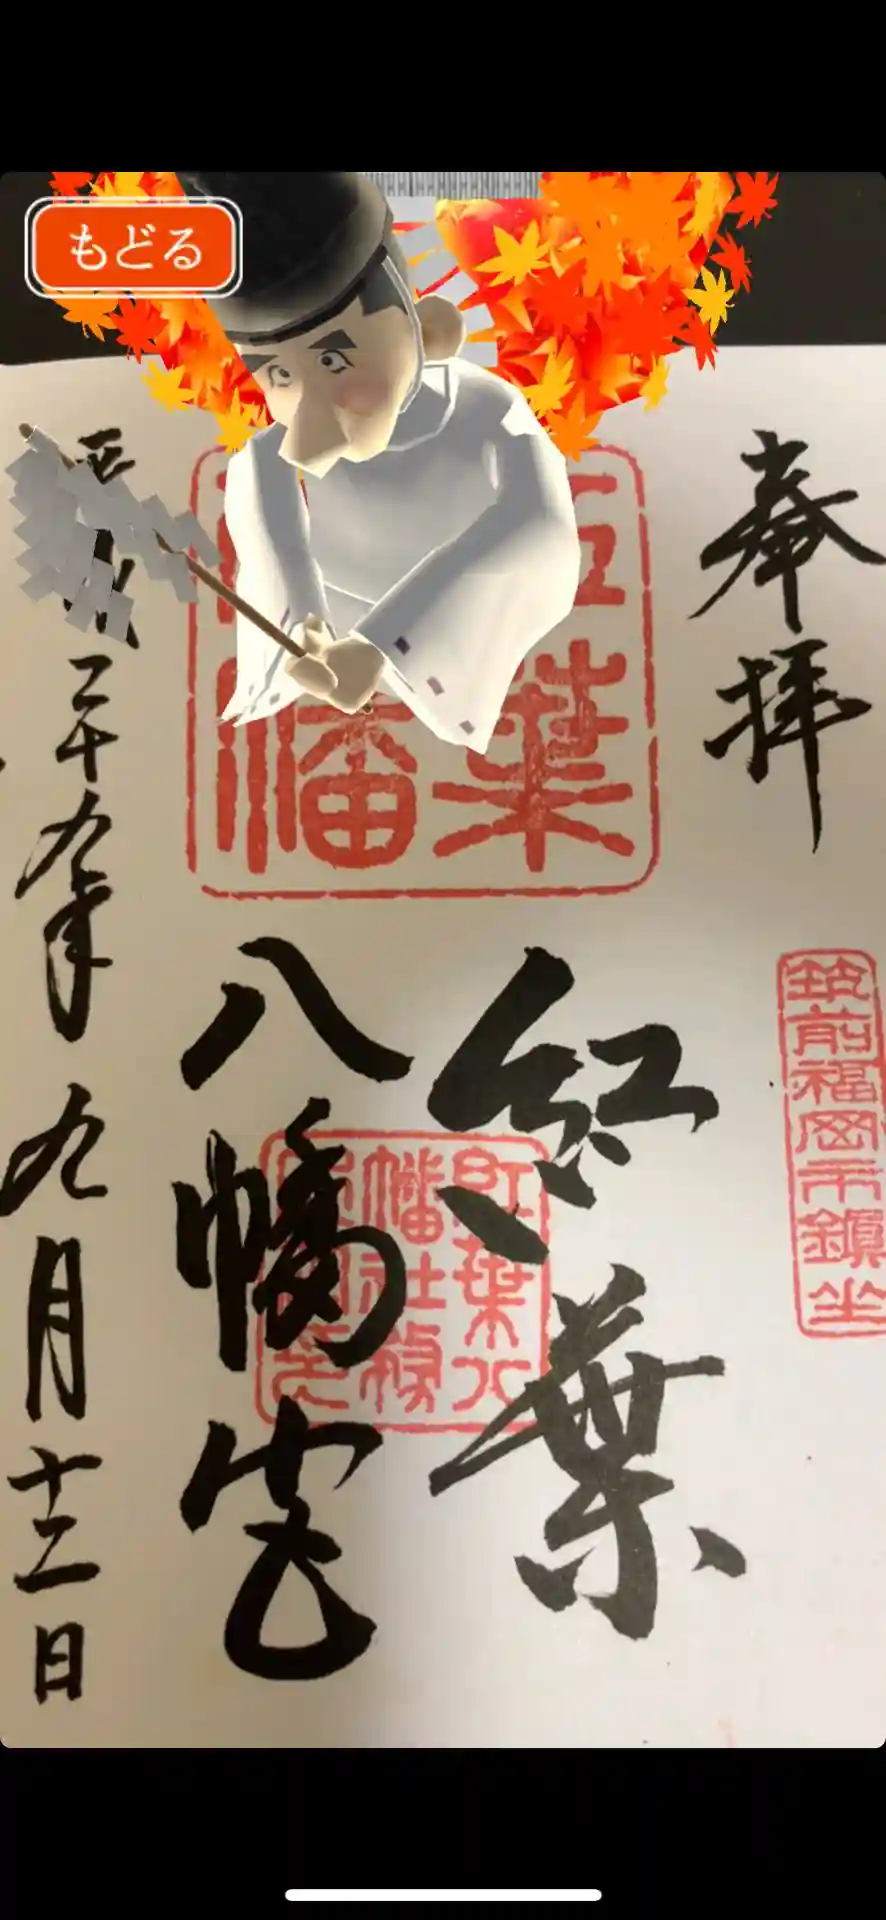 もどる
奉拝
筑前福岡市鎭坐
葉
幡
紅葉
八幡宮
紅葉八
幡社務
二十九年九月十二日